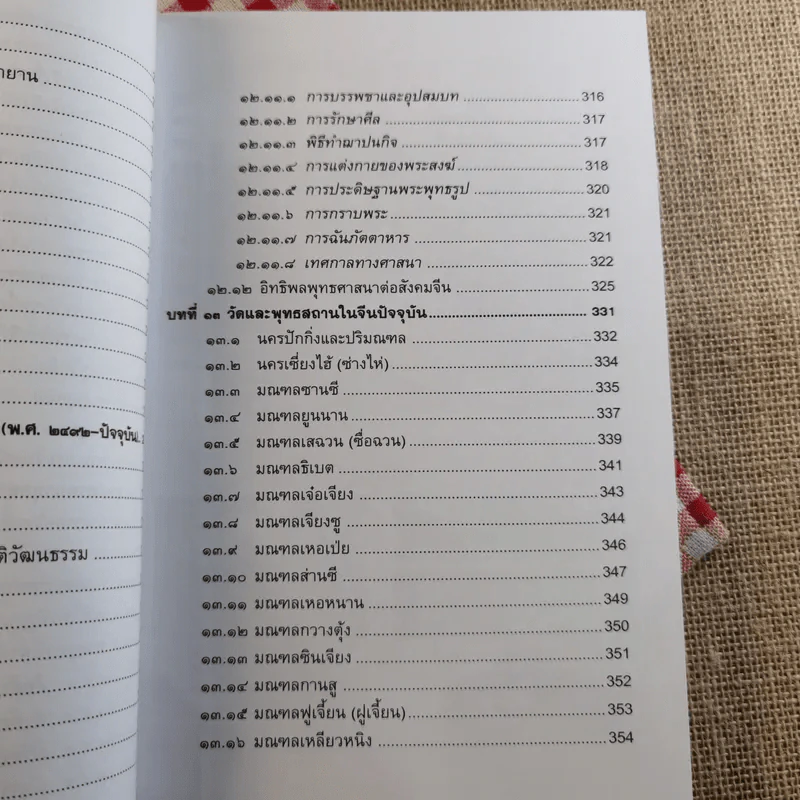 ายาน
(พ.ศ. ๒๔๙๒-ปัจจุบัน)
ติวัฒนธรรม
๑๒.๑๑.๑ การบรรพชาและอุปสมบท 316
๑๒.๑๑.๒ การรักษาศีล 317
๑๒.๑๑.๓ พิธีทำฌาปนกิจ 317
๑๒.๑๑.๔ การแต่งกายของพระสงฆ์ 318
๑๒.๑๑.๕ การประดิษฐานพระพุทธรูป 320
๑๒.๑๑.๖ การกราบพระ 321
๑๒.๑๑.๗ การฉันภัตตาหาร 321
๑๒.๑๑.๘ เทศกาลทางศาสนา 322
๑๒.๑๒ อิทธิพลพุทธศาสนาต่อสังคมจีน 325
บทที่ ๑๓ วัดและพุทธสถานในจีนปัจจุบัน 331
๑๓.๑ นครปักกิ่งและปริมณฑล 332
๑๓.๒ นครเซี่ยงไฮ้ (ซ่างไห่) 334
๑๓.๓ มณฑลซานซี 335
๑๓.๔ มณฑลยูนนาน 337
๑๓.๕ มณฑลเสฉวน (ซื่อฉวน) 339
๑๓.๖ มณฑลธิเบต 341
๑๓.๗ มณฑลเจ๋อเจียง 343
๑๓.๘ มณฑลเจียงซู 344
๑๓.๙ มณฑลเหอเป่ย 346
๑๓.๑๐ มณฑลส่านซี 347
๑๓.๑๑ มณฑลเหอหนาน 349
๑๓.๑๒ มณฑลกวางตุ้ง 350
๑๓.๑๓ มณฑลซินเจียง 351
๑๓.๑๔ มณฑลกานสู 352
๑๓.๑๕ มณฑลฟูเจี้ยน (ฝูเจี้ยน) 353
๑๓.๑๖ มณฑลเหลียวหนิง 354